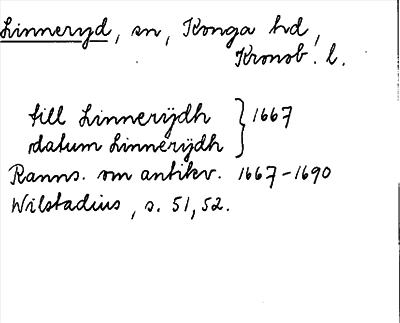 Linneryd, sn, Konga hd,
Kronob. l.
till Linnerÿdh } 1667
datum Linnerÿdh
Ranns. om antikv. 1667-1690
Wilstadius, s. 51, 52.